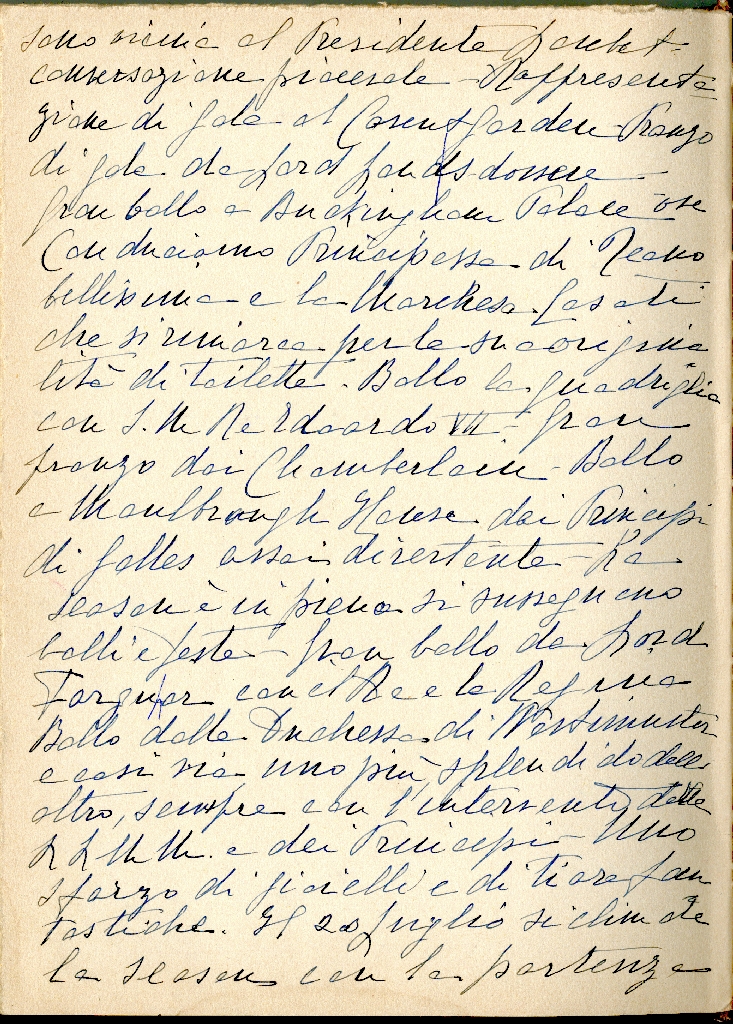 sono vicina al Presidente Loubet -
conversazione piacevole - Rappresenta
zione di Gala al Covent Garden - Pranzo
di gala da Lord Landsdowne -
Gran ballo a Buckingham Palace ove
Conduciamo Principessa di Teano
bellissima e la Marchesa Casati
che si rimarca per la sua origina
lità di toilette. Ballo la quadriglia
con S. M. Re Edoardo VII - Gran
pranzo dai Chamberlain - Ballo
a Maulbrough House dai Principi
di Galles assai divertente - La
season è in piena si susseguono
balli e feste - Gran ballo da Lord
Farquar con il Re e la Regina
Ballo dalla Duchessa di Westiminster
e così via, uno più splendido dell
altro, sempre con l'intervento delle
L L M M. e dei Principi - Uno
sfarzo di gioielli e di tiare fan
tastiche. Il 20 Luglio si
la season con la partenza